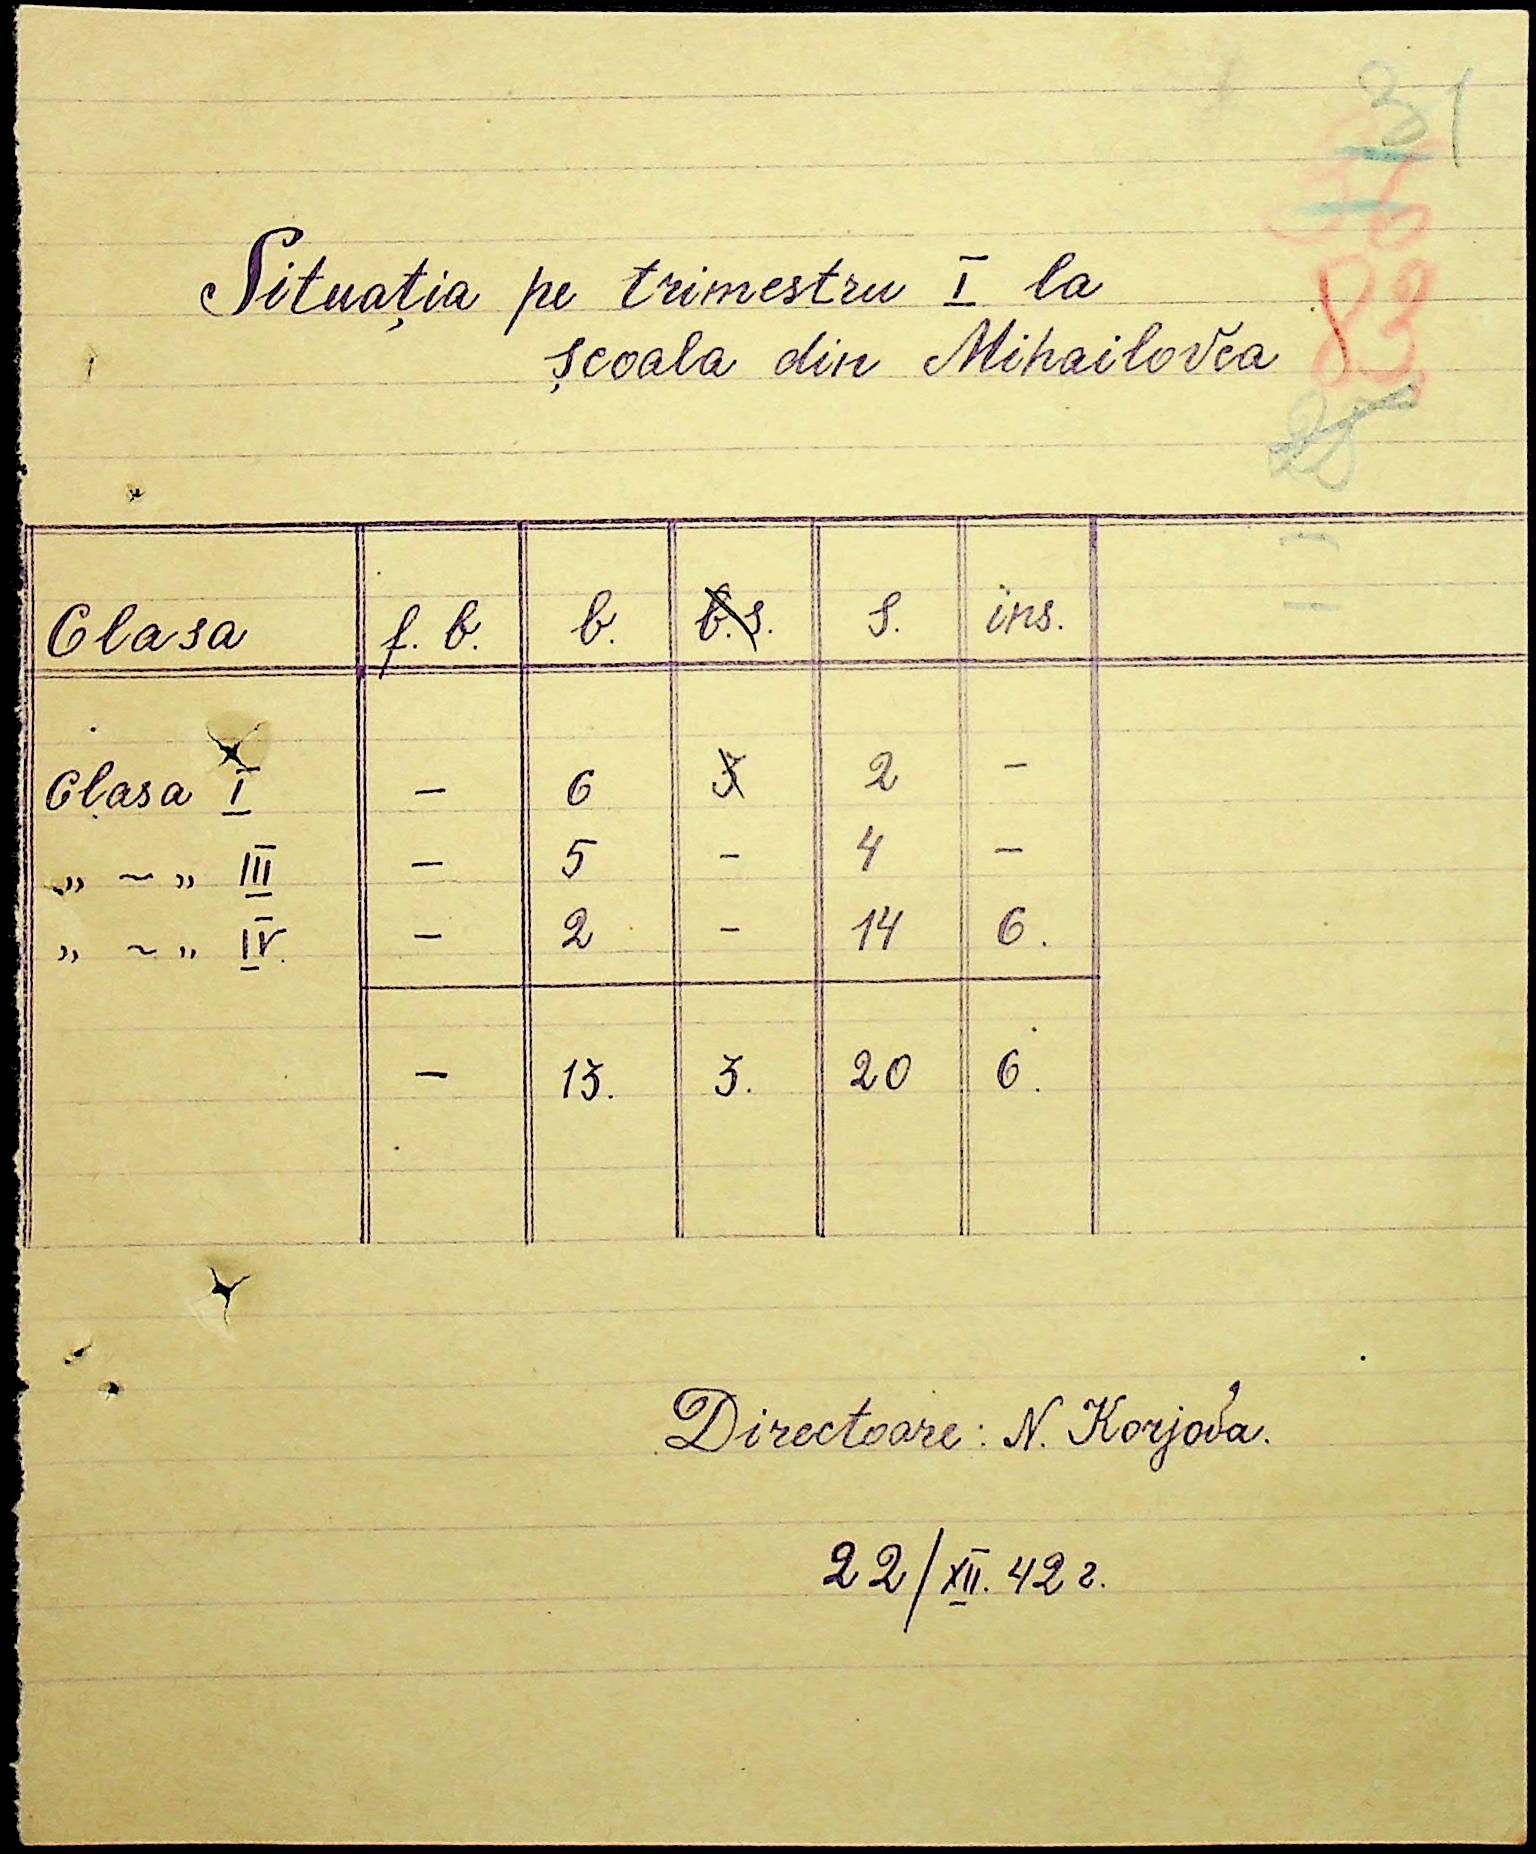 31
56
83
28
Situația pe trimestru I la
școala din Mihailovca
Clasa f. b. b. b.s. s. ins.
Clasa I – 6 3 2 –
„ ~ „ III – 5 – 4 –
„ ~ „ IV. – 2 – 14 6.
– 13. 3. 20 6.
Directoare: N. Korjova.
22/XII. 42 г.